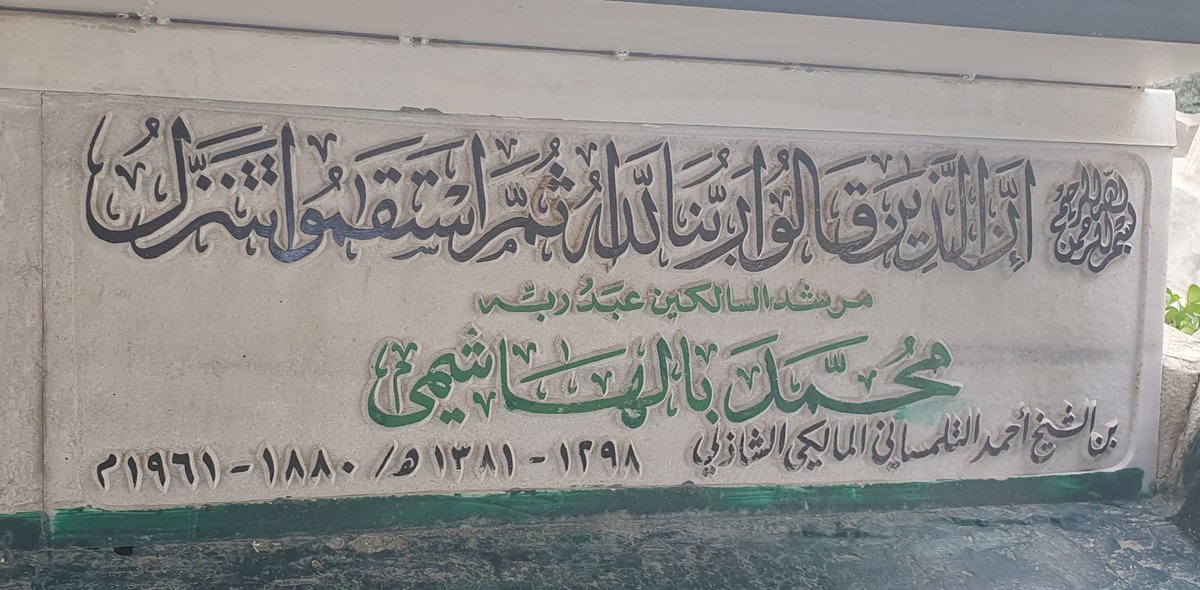 بسم الله الرحمن الرحيم
إِنَّ الَّذِينَ قَالُوا رَبُّنَا اللَّهُ ثُمَّ اسْتَقَامُوا تَتَنَزَّلُ
مرشد السالكين عبد ربه
محمد بالهاشمي
بن الشيخ أحمد التلمساني المالكي الشاذلي
١٢٩٨ - ١٣٨١ هـ / ١٨٨٠ - ١٩٦١ م